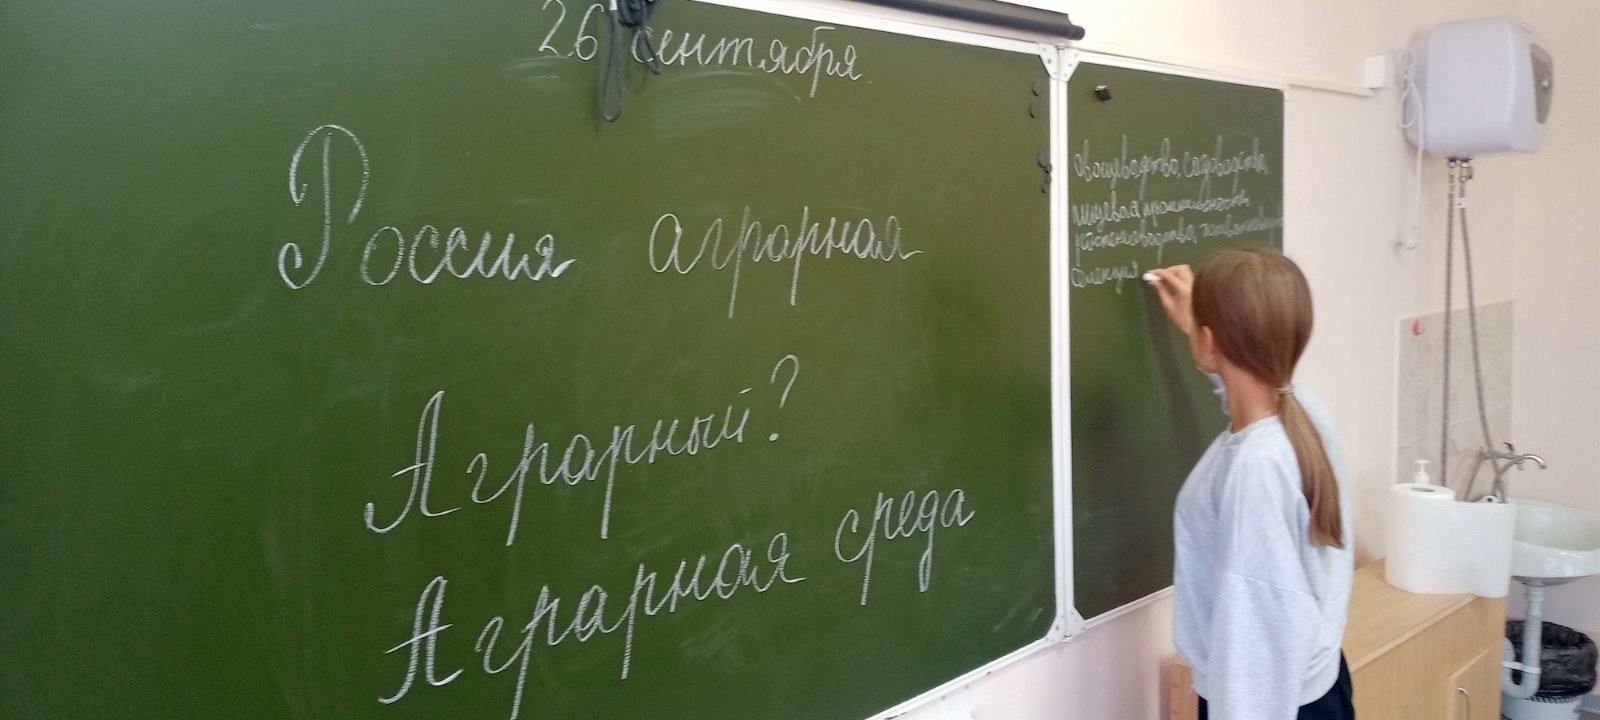 26 сентября
Россия аграрная
Аграрный?
Аграрная среда
Овощеводство, садоводство,
пищевая промышленность,
растениеводство, животновод
селекция